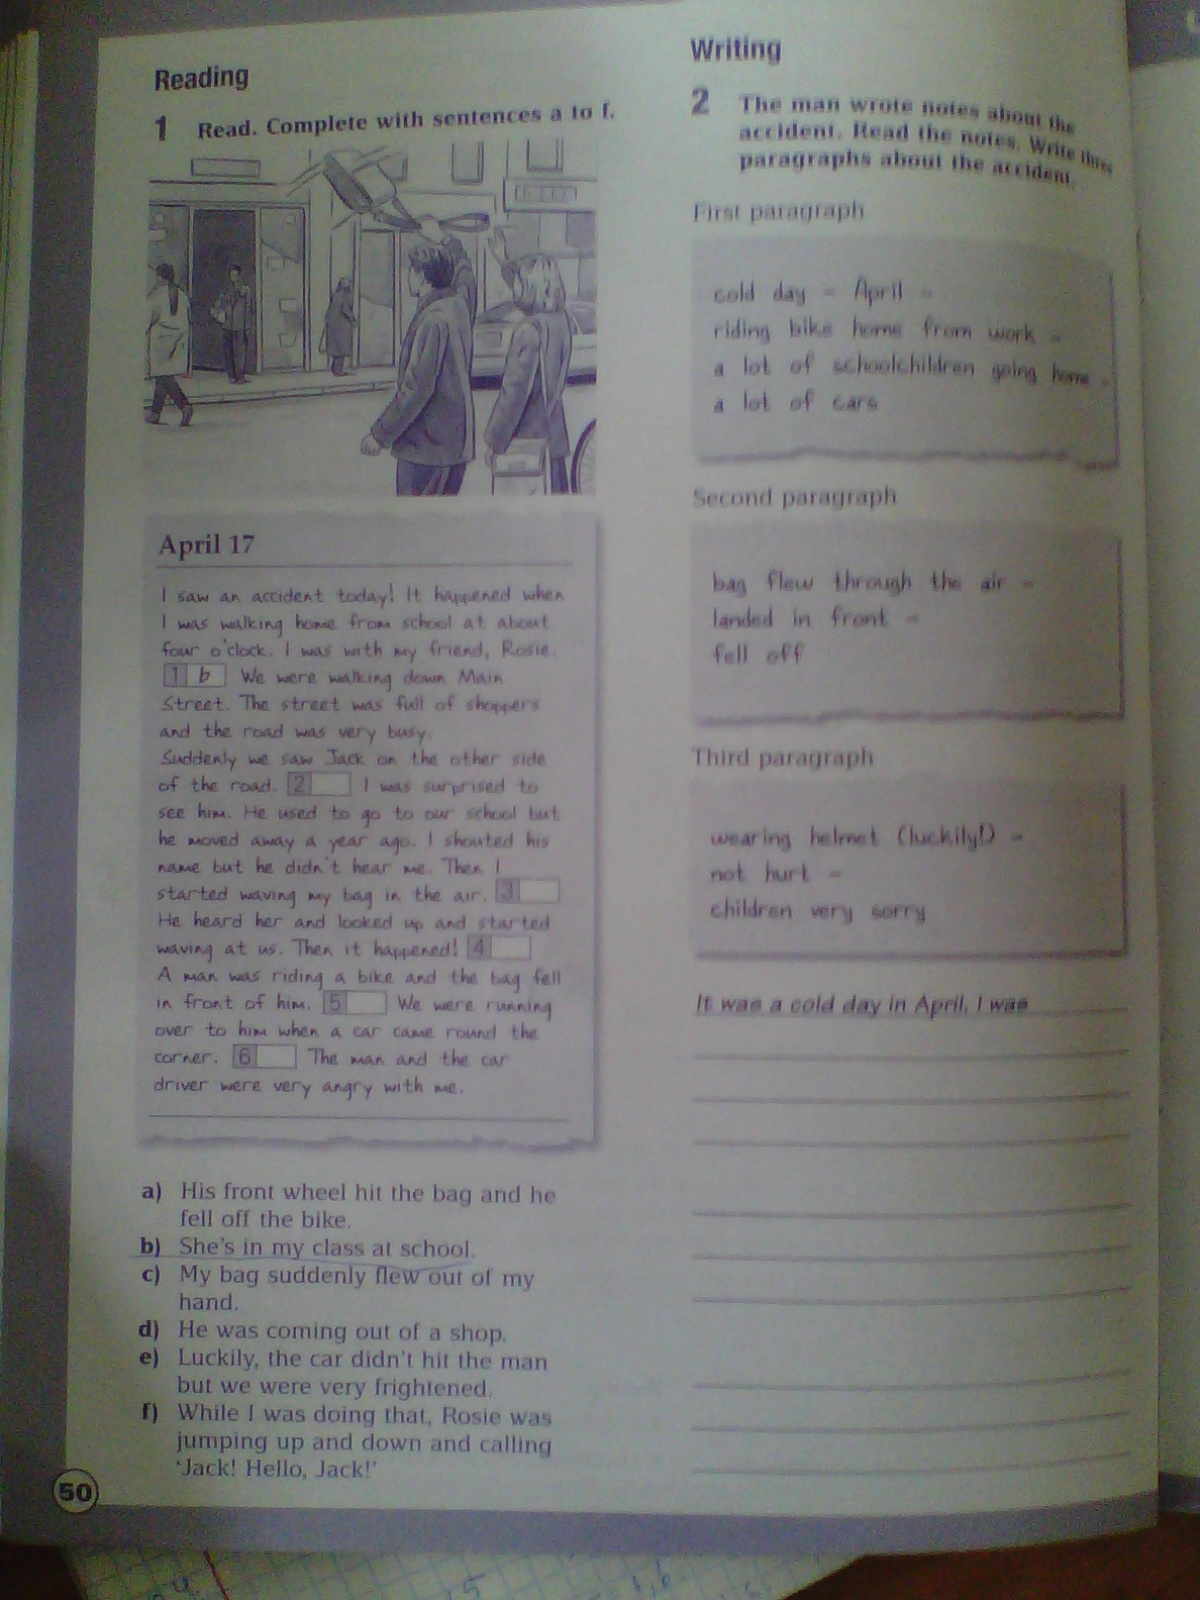 Reading
1 Read. Complete with sentences a to f.
April 17
I saw an accident today! It happened when
I was walking home from school at about
four o'clock. I was with my friend, Rosie.
1 b We were walking down Main
Street. The street was full of shoppers
and the road was very busy.
Suddenly we saw Jack on the other side
of the road. 2 I was surprised to
see him. He used to go to our school but
he moved away a year ago. I shouted his
name but he didn't hear me. Then I
started waving my bag in the air. 3
He heard her and looked up and started
waving at us. Then it happened! 4
A man was riding a bike and the bag fell
in front of him. 5 We were running
over to him when a car came round the
corner. 6 The man and the car
driver were very angry with me.
a) His front wheel hit the bag and he
fell off the bike.
b) She's in my class at school.
c) My bag suddenly flew out of my
hand.
d) He was coming out of a shop.
e) Luckily, the car didn't hit the man
but we were very frightened.
f) While I was doing that, Rosie was
jumping up and down and calling
'Jack! Hello, Jack!'
50
Writing
2 The man wrote notes about the
accident. Read the notes. Write three
paragraphs about the accident.
First paragraph
cold day – April –
riding bike home from work –
a lot of schoolchildren going home –
a lot of cars
Second paragraph
bag flew through the air –
landed in front –
fell off
Third paragraph
wearing helmet (luckily!) –
not hurt –
children very sorry
It was a cold day in April. I was